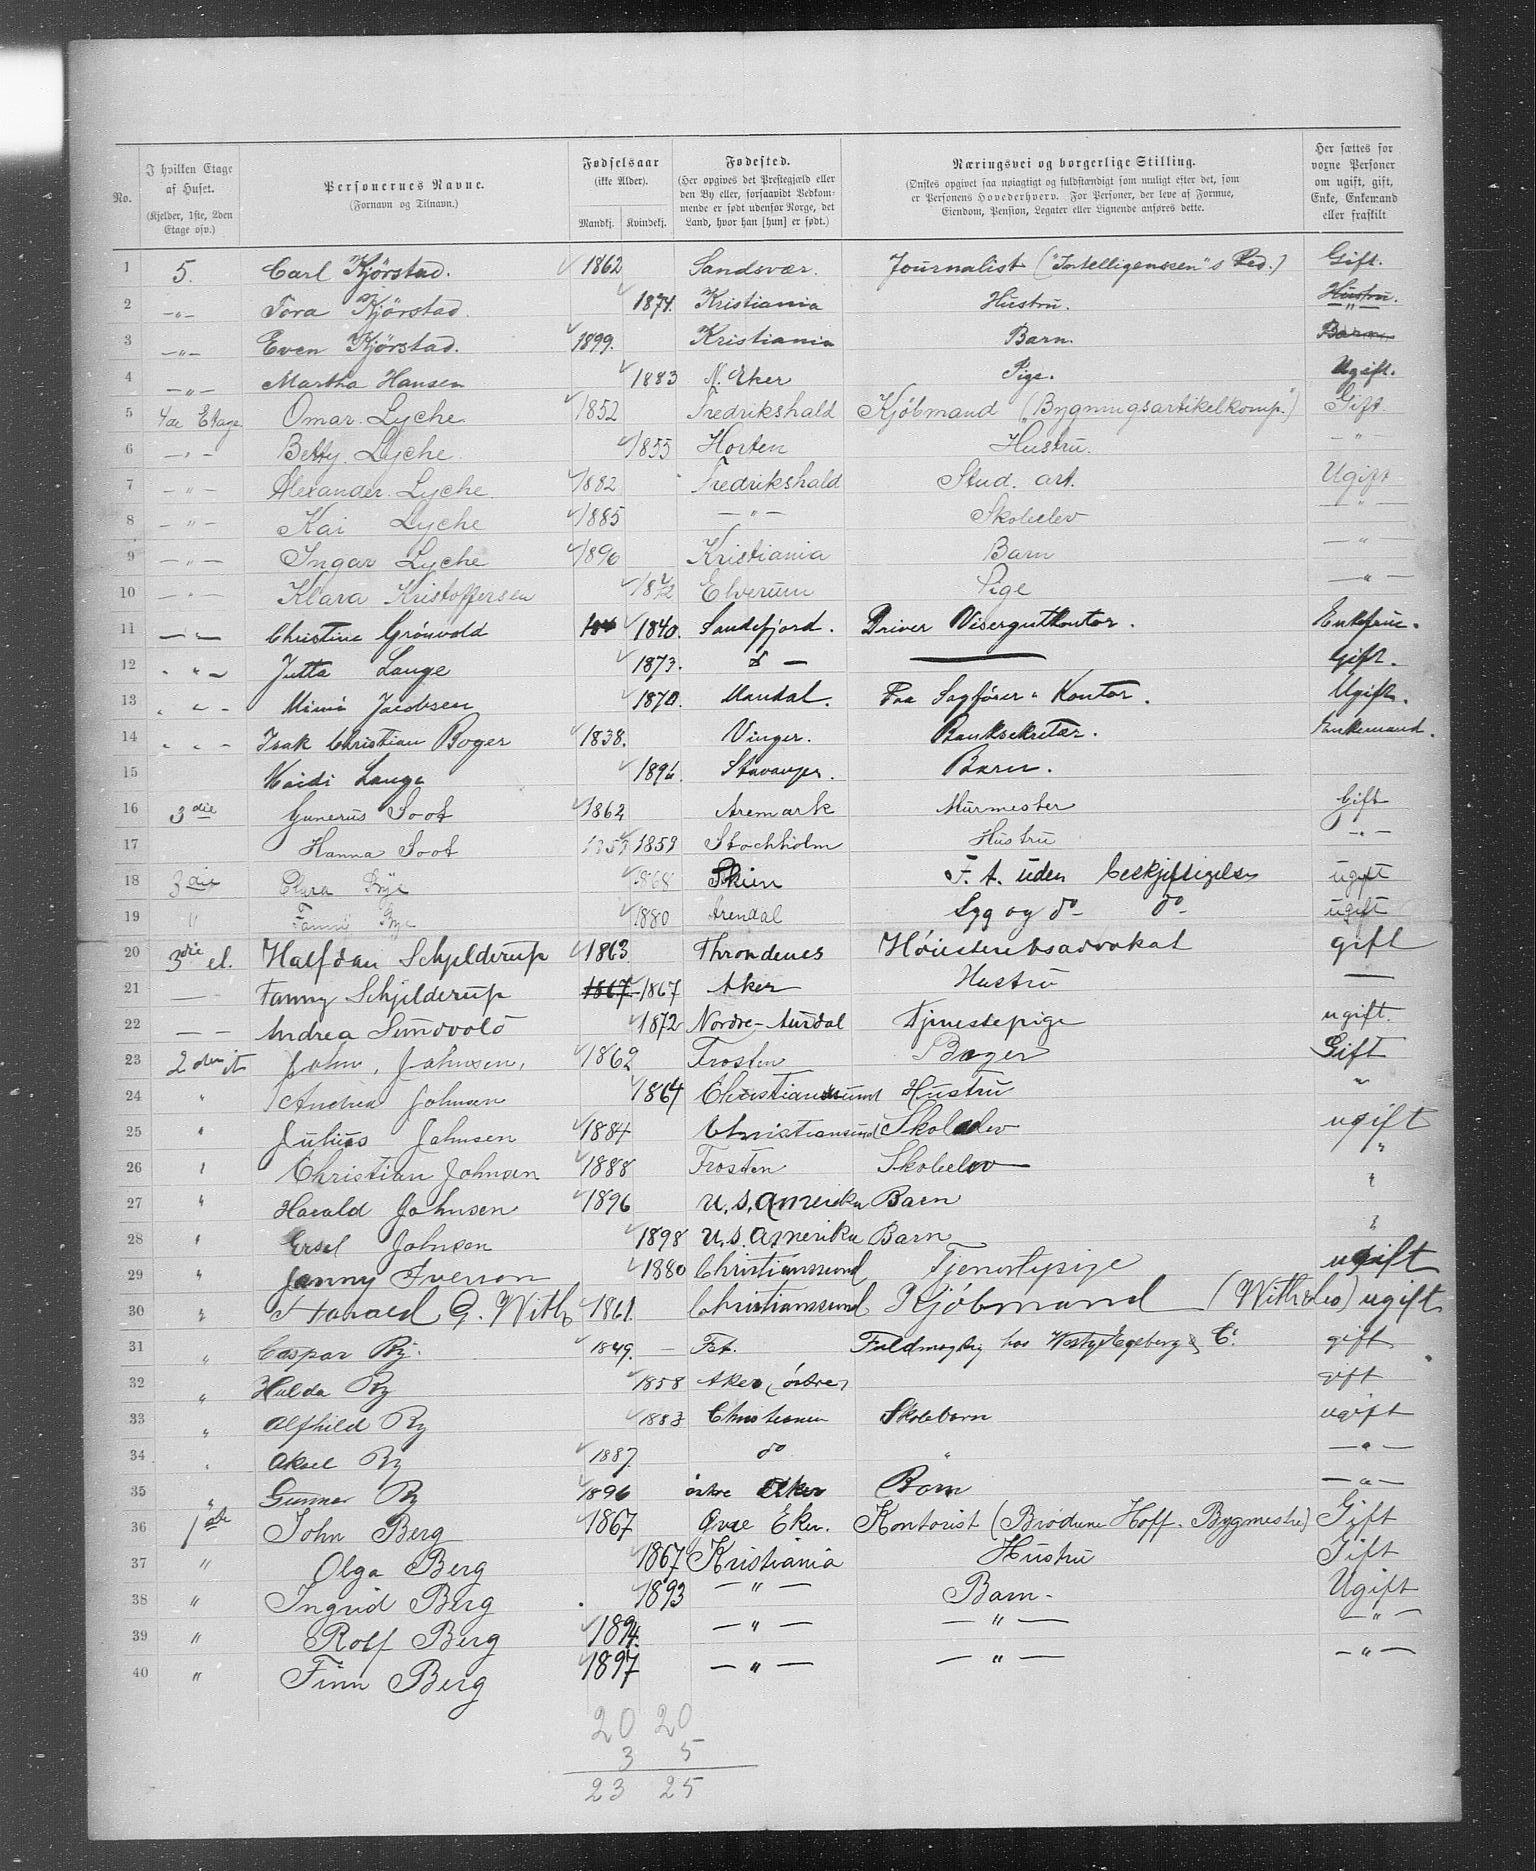 No. | I hvilken Etage af Huset. (Kjelder, 1ste, 2den Etage osv.) | Personernes Navne. (Fornavn og Tilnavn.) | Fødselsaar (ikke Alder). Mandkj. Kvindekj. | Fødested. (Her opgives det Prestegjæld eller den By eller, forsaavidt Vedkommende er født udenfor Norge, det Land, hvor han [hun] er født.) | Næringsvei og borgerlige Stilling. (Ønskes opgivet saa nøiagtigt og fuldstændigt som muligt efter det, som er Personens Hovederhverv. For Personer, der leve af Formue, Eiendom, Pension, Legater eller Lignende anføres dette. | Her sættes for voxne Personer om ugift, gift, Enke, Enkemand eller fraskilt
1 5. Carl Kjörstad. 1862 Sandsvær. Journalist ("Intelligenssen"s Red.) Gift.
2 -"- Tora Kjörstad. 1871. Kristiania Hustru. Hustru. -"-
3 -"- Even Kjörstad. 1899. Kristiania Barn. Barn
4 -"- Martha Hansen 1883 N. Eker Pige. Ugift.
5 4de Etage Omar Lyche 1852 Fredrikshald Kjøbmand ("Bygningsartikelkomp.") Gift
6 -"- Betty Lyche 1855 Horten Hustru. -"-
7 -"- Alexander Lyche 1882 Fredrikshald Stud. art. Ugift
8 -"- Kai Lyche 1885 -"- Skoleelev -"-
9 -"- Ingar Lyche 1896 Kristiania Barn -"-
10 -"- Klara Kristoffersen 1872 Elverum Pige -"-
11 -"- Christine Grönvold 1840. Sandefjord. Driver Visergutkontor. Enkefrue.
12 -"- Jutta Lange 1873. do — — Gift.
13 -"- Mimi Jacobsen 1870. Mandal. Paa Sagfører Kontor. Ugift.
14 -"- Isak Christian Boger 1838. Vinger. Banksekretær. Enkemand.
15 Haidi Lange 1896. Stavanger. Barn.
16 3die Gunerus Soot 1862 Aremark Murmester Gift
17 Hanna Soot 1859 1859 Stockholm Hustru -"-
18 3die Clara Bye 1868 Skien F. A. uden beskjeftigelse ugift
19 " Fanni Bye 1880 Arendal Syg og do do ugift
20 3die el. Halfdan Schjelderup 1863 Throndenes Høiesteretsadvokat gift
21 — Fanny Schjelderup 1867 1867 Aker Hustru —
22 — — Andrea Sundvold 1872 Nordre-Aurdal Tjenestepige ugift.
23 2den it John Johnsen, 1862 Frosten Bager Gift
24 " Andrea Johnsen 1864 Christianssund Hustru "
25 " Julius Johnsen 1884 Christianssund Skoleelev ugift
26 " Christian Johnsen 1888 Frosten Skoleelev "
27 " Harald Johnsen 1896 U. S. Amerika Barn "
28 " Johnsen 1898 U. S. Amerika Barn "
29 " Jenny Iverson 1880 Christianssund Tjenestepige ugift
30 " Harald G. With 1861. Christianssund Kjøbmand (With &Co) ugift
31 " Caspar Ry. 1849. — Fet. Fuldmægtig hos Westye Egeberg & C. gift
32 " Hulda Ry 1858 Aker (östre) gift
33 " Alfhild Ry 1883 Christiania Skolebarn ugift
34 " Aksel Ry 1887. do " -"-
35 " Gunnar Ry 1896 östre Aker Barn -"-
36 1ste John Berg 1867 Øvre Eker. Kontorist (Brødrene Hoff. Bygmestre) Gift
37 " Olga Berg 1867 Kristiania Hustru Gift
38 " Ingrid Berg 1893 -"- Barn- Ugift
39 " Rolf Berg 1894. -"- -"- -"-
40 " Finn Berg 1897 -"- -"- -"-
20 20
3 5
23 25